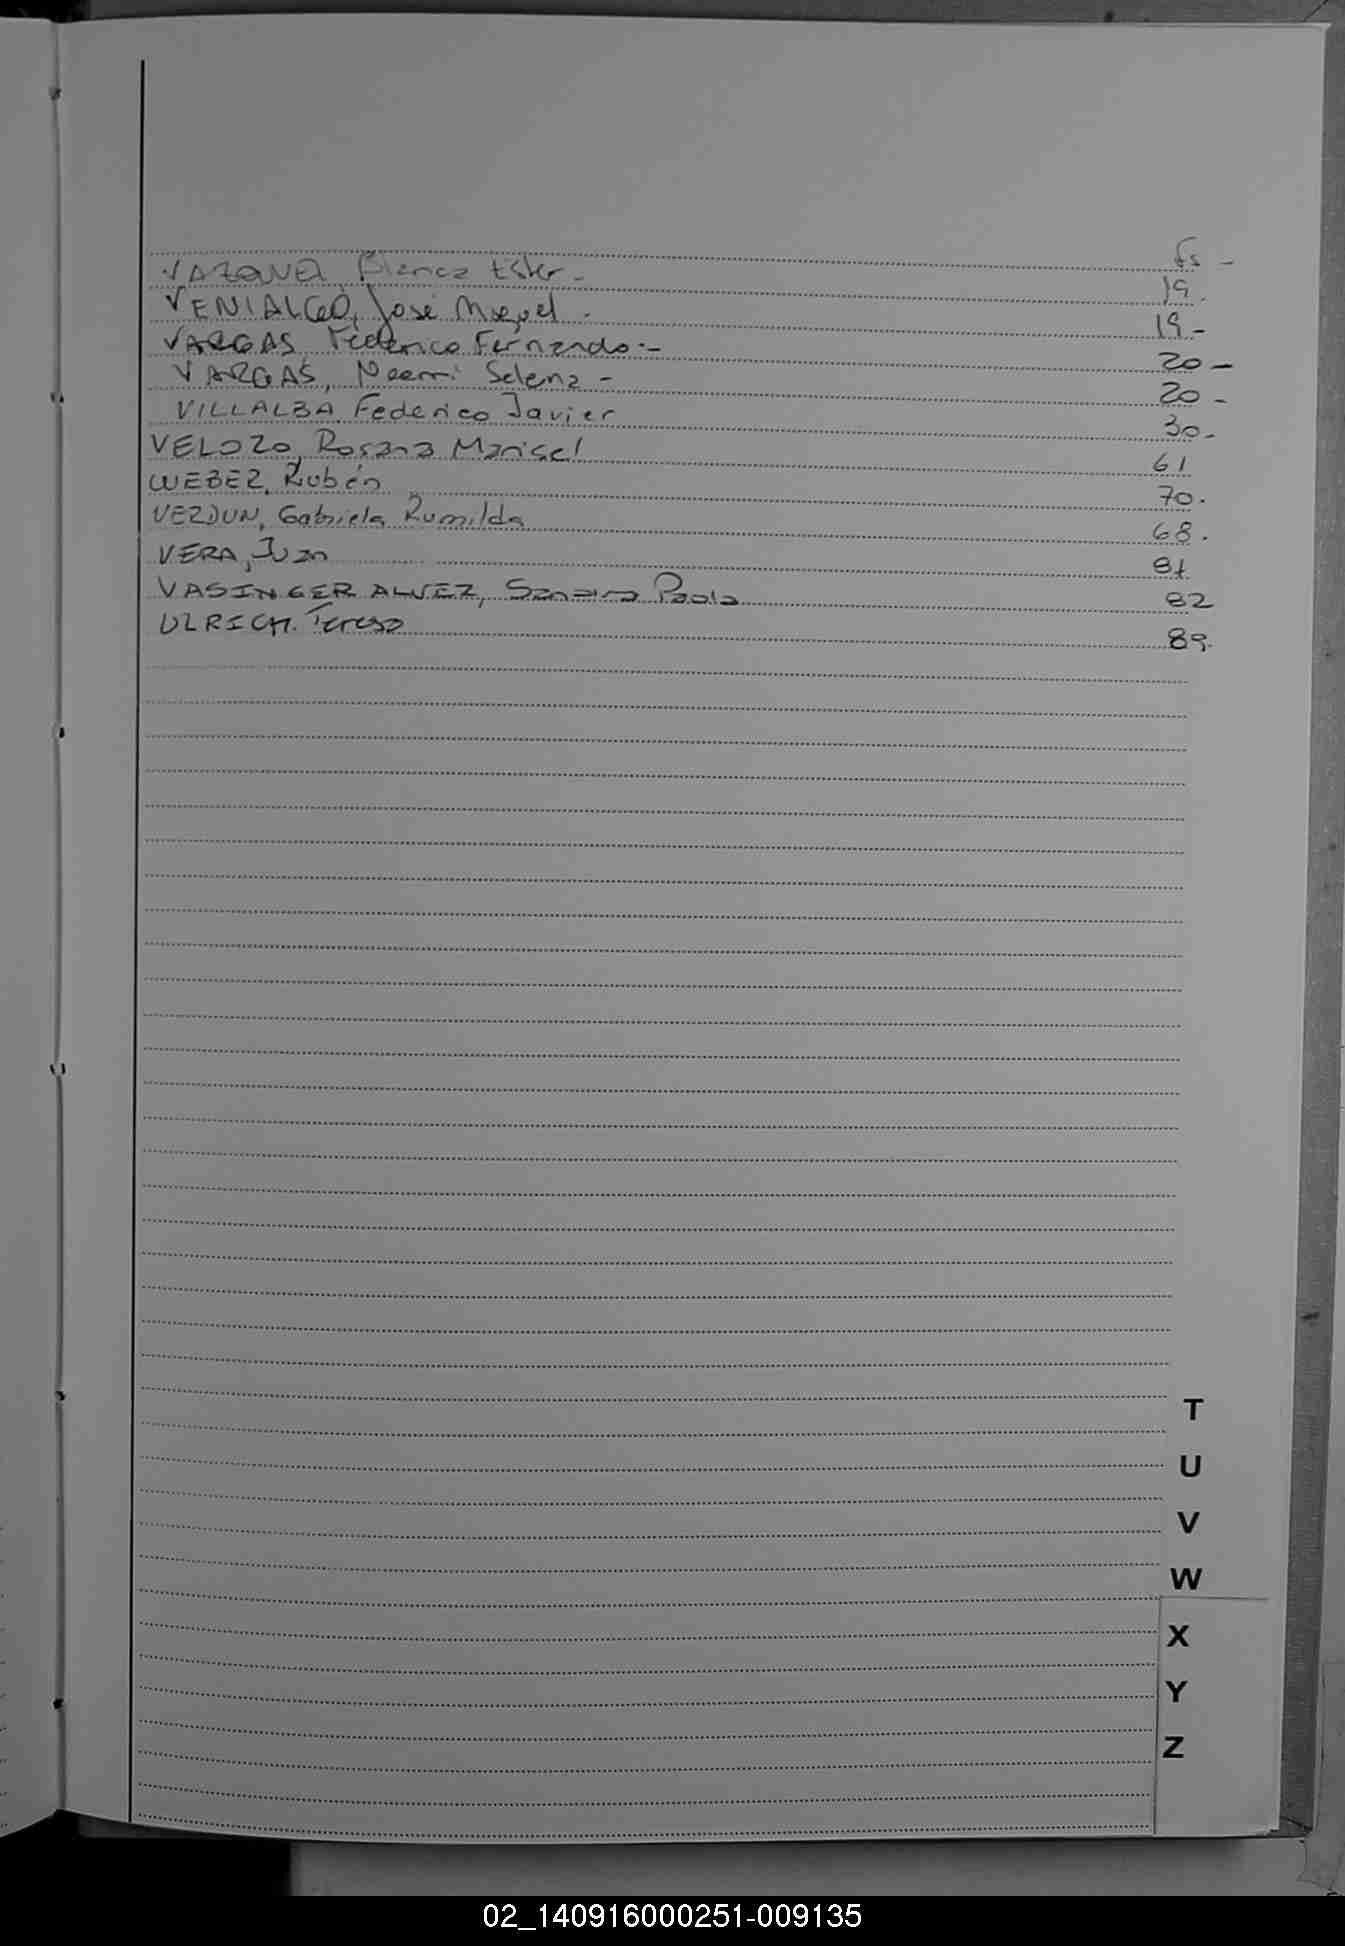 fs -
Blanca Ester - 19.
VENIALGO, José Miguel - 19-
VARGAS Federico Fernando.- 20-
VARGAS, Noemi Selena - 20-
VILLALBA Federico Javier 30.
VELOZO, Rosana Marisel 61
WEBER, Rubén 70.
VERDUN, Gabriela Rumilda 68.
VERA, Juan 81
VASINGER ALVEZ, Sandra Paola 82
ULRICH. Teresa 89.
T
U
V
W
X
Y
Z
02_140916000251-009135